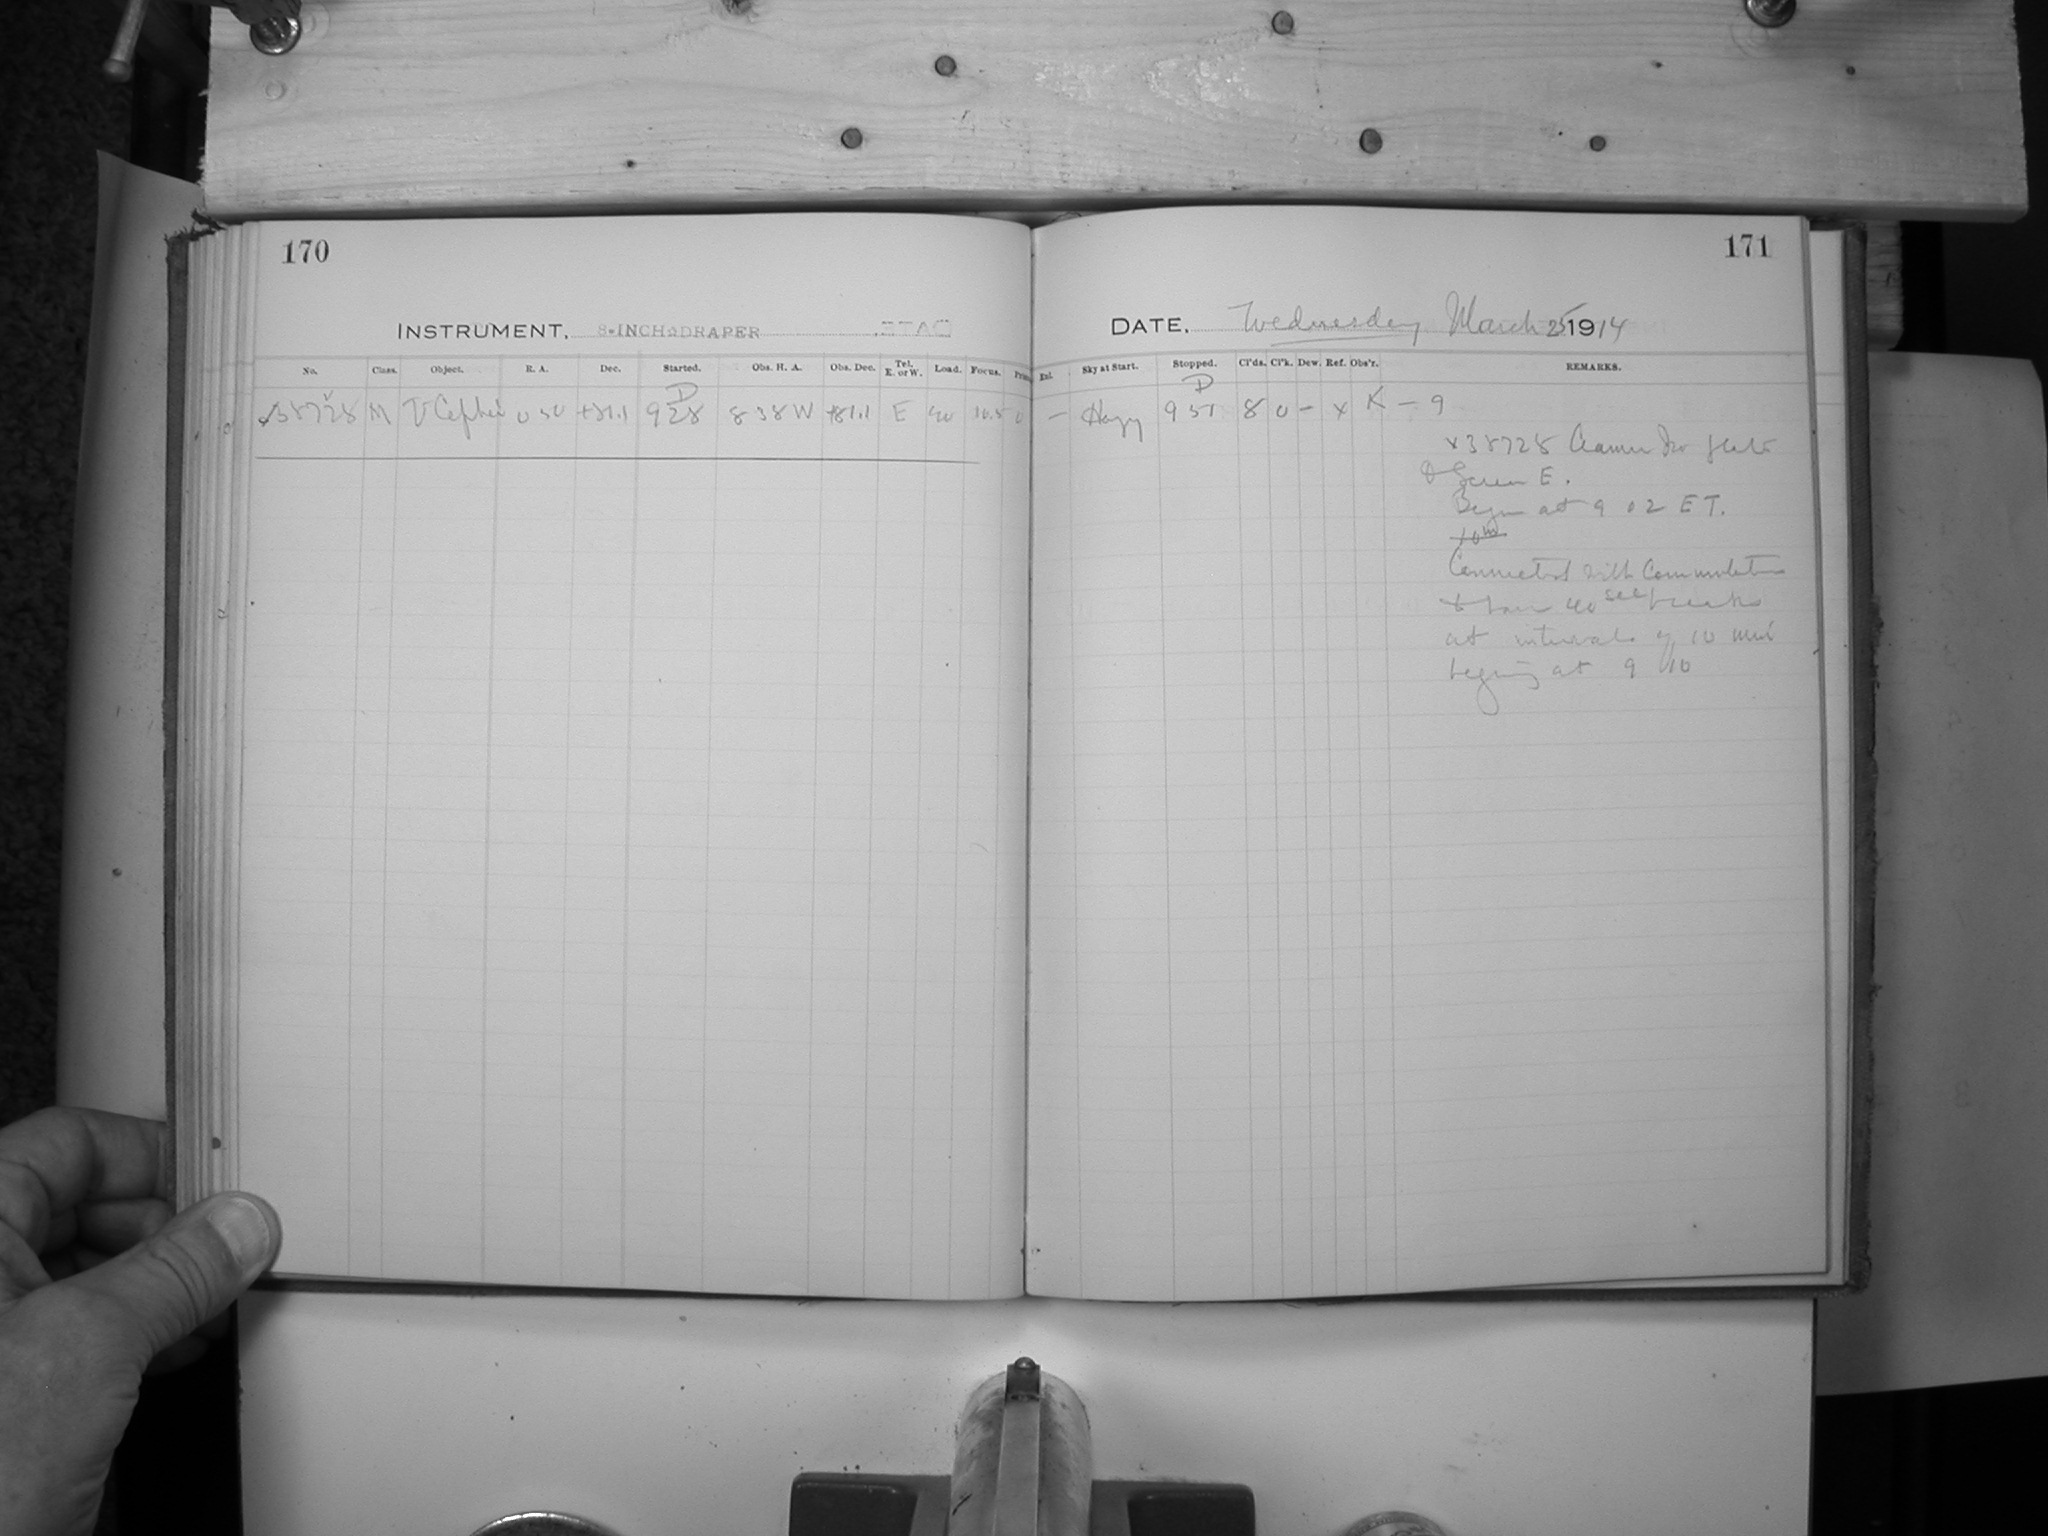 170
INSTRUMENT, 8-INCH DRAPER
No. Class. Object. R. A. Dec. Started. Obs. H. A. Obs. Dec. Tel. E. or W. Load. Focus.
38728 M U Cephei 0 50 +81.1 9 28 8 38 W +81.1 E 40 10.5 0
171
DATE, Wednesday March 25 1914
Exl. Sky at Start. Stopped. Cl'ds. Cl'k. Dew. Ref. Obs'r. REMARKS.
— Hazy 9 51 8 0 – x K – 9
x38728 Cramer Iso plate
& Screen E.
Began at 9 02 E T.
10m
Connected with Commutator
40 sec breaks
at intervals of 10 min
begining at 9 10